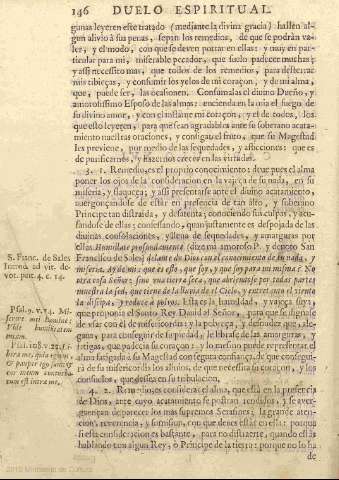 146 DUELO ESPIRITUAL.
gunas leyeren este tratado (mediante la divina gracia) hallen al-
gun alivio à sus penas, sepan los remedios, de que se podràn va-
ler, y el modo, con que se deven portar en ellas: y muy en par-
ticular para mi, miserable pecador, que suelo padecer muchas;
y assi necessito mas, que todos de los remedios, para desterrar
mis tibieças, y consumir los yelos de mi coraçon, y de mi alma,
que, puede ser, las ocasionen. Consumalas el divino Dueño, y
amorosissimo Esposo de las almas: encienda en la mia el fuego de
su divino amor, y con el instàme mi coraçon, y el de todos, los
que esto leyeren, para que sean agradables ante su soberano acata-
miento nuestras oraciones, y configamos el fruto, que su Magestad
les previene, por medio de las sequedades, y aflicciones: que es
de purificarnos, y hazernos crecer en las virtudes.
3. 1. Remedio, es el proprio conocimiento: deue pues el alma
poner los ojos de la consideracion en la vajeça de su nada, en su
miseria, y flaqueça; y assi presentarse ante el divino acatamiento,
avergonçandose de estar en presencia de tan alto, y soberano
Principe tan distraida, y desatenta; conociendo sus culpas, y acu-
sandose de ellas; confessando, que justamente es despojada de las
divinas consolaciones, y llena de sequedades, y amarguras por
ellas. Humillate profundamente (dize mi amoroso P. y devoto San
Francisco de Sales) delante de Dios con el conocimiento de tu nada, y
miseria. Ay de mi: que es esto, que soy, y que soy para mi misma? No
otra cosa Señor; sino una tierra seca, que abriendose por todas partes
muestra la sed, que tiene de la lluvia del Cielo, y entre tanto el viento
la disipa, y reduce à polvos. Esta es la humildad, y vajeça suya,
que proponia el Santo Rey David al Señor, para que se sirviesse
de vsar con èl de misericordia: y la pobreça, y desnudez, que ale-
gaua, para conseguir de su piedad, le librasse de las amarguras, y
fatigas, que padecia su coraçon: y lo mesmo puede representar el
alma fatigada à su Magestad con segura confiança, de que consegui-
rà de su misericordia los alivios, de que necessita su coraçon, y los
consuelos, que dessea en su tribulacion.
4. 2. Remedio es considerar el alma, que està en la presencia
de Dios, ante cuyo acatamiento se postran rendidos, y se aver-
guençan de parecer los mas supremos Serafines; la grande aten-
cion, reverencia, y sumission, con que deve estar en ella: porque
si esta consideracion es bastante, para no distraerte, quando estàs
hablando con algun Rey, ò Principe de la tierra: porque no lo ha
de
S. Franc. de Sales
Introd. ad vit. de-
vot. par. 4. c. 14.
Psal. 9. v. 14. Mi-
serere mei Domine:
Vide humilitatem
meam.
Psal. 108. v. 21. Li-
bera me, quia egenus
& pauper ego sum: et
cor meum conturba-
tum est intra me.
2010 Ministerio de Cultura